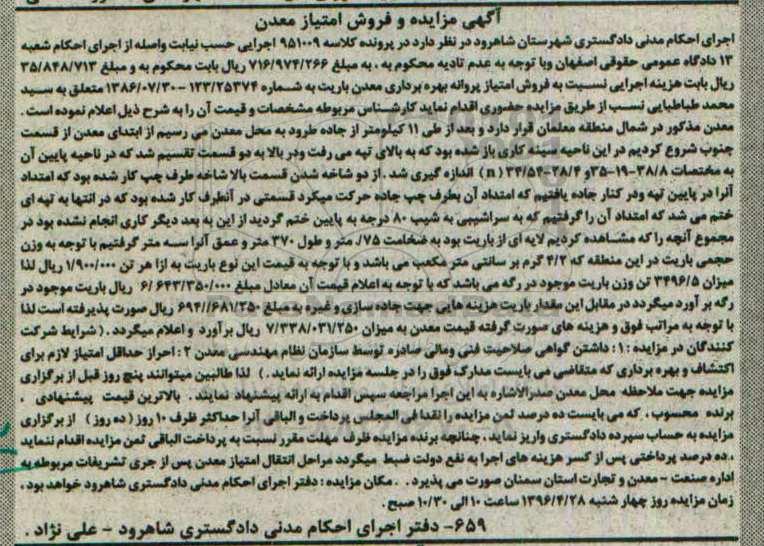 آگهی مزایده و فروش امتیاز معدن
اجرای احکام مدنی دادگستری شهرستان شاهرود در نظر دارد در پرونده کلاسه ۹۵۱۰۰۹ اجرایی حسب نیابت واصله از اجرای احکام شعبه
۱۳ دادگاه عمومی حقوقی اصفهان وبا توجه به عدم تادیه محکوم به ، به مبلغ ۷۱۶/۹۷۴/۲۶۶ ریال بابت محکوم به و مبلغ ۳۵/۸۴۸/۷۱۳
ریال بابت هزینه اجرایی نسبت به فروش امتیاز پروانه بهره برداری معدن باریت به شماره ۱۲۳/۲۵۳۷۴ - ۱۳۸۶/۰۷/۳۰ متعلق به سید
محمد طباطبایی نسب از طریق مزایده حضوری اقدام نماید کارشناس مربوطه مشخصات و قیمت آن را به شرح ذیل اعلام نموده است .
معدن مذکور در شمال منطقه معلمان قرار دارد و بعد از طی ۱۱ کیلومتر از جاده طرود به محل معدن می رسیم از ابتدای معدن از قسمت
جنوب شروع کردیم در این ناحیه سینه کاری باز شده بود که به بالای تپه می رفت ودر بالا به دو قسمت تقسیم شد که در ناحیه پایین آن
به مختصات ۳۸/۸-۱۹-۳۵و ۲۸/۴-۳۴/۵۴ (n) اندازه گیری شد . از دو شاخه شدن قسمت بالا شاخه طرف چپ کار شده بود که امتداد
آنرا در پایین تپه ودر کنار جاده یافتیم که امتداد آن بطرف چپ جاده حرکت میکرد قسمتی در آنطرف کار شده بود که در انتها به تپه ای
ختم می شد که امتداد آن را گرفتیم که به سراشیبی به شیب ۸۰ درجه به پایین ختم گردید از این به بعد دیگر کاری انجام نشده بود در
مجموع آنچه را که مشاهده کردیم لایه ای از باریت بود به ضخامت ۷۵/. متر و طول ۳۷۰ متر و عمق آنرا سه متر گرفتیم با توجه به وزن
حجمی باریت در این منطقه که ۴/۲ گرم بر سانتی متر مکعب می باشد و با توجه به قیمت این نوع باریت به ازا هر تن ۱/۹۰۰/۰۰۰ ریال لذا
میزان ۳۴۹۶/۵ تن وزن باریت موجود در رگه می باشد که با توجه به اعلام قیمت آن معادل مبلغ ۶/۶۴۳/۳۵۰/۰۰۰ ریال باریت موجود در
رگه بر آورد میگردد در مقابل این مقدار باریت هزینه هایی جهت جاده سازی و غیره به مبلغ ۶۹۴//۶۸۱/۲۵۰ ریال صورت پذیرفته است لذا
با توجه به مراتب فوق و هزینه های صورت گرفته قیمت معدن به میزان ۷/۳۳۸/۰۳۱/۲۵۰ ریال برآورد و اعلام میگردد . ( شرایط شرکت
کنندگان در مزایده : ۱: داشتن گواهی صلاحیت فنی ومالی صادره توسط سازمان نظام مهندسی معدن ۲ : احراز حداقل امتیاز لازم برای
اکتشاف و بهره برداری که متقاضی می بایست مدارک فوق را در جلسه مزایده ارائه نماید . ) لذا طالبین میتوانند پنج روز قبل از برگزاری
مزایده جهت ملاحظه محل معدن صدرالاشاره به این اجرا مراجعه سپس اقدام به ارائه پیشنهاد نمایند . بالاترین قیمت پیشنهادی ،
برنده محسوب ، که می بایست ده درصد ثمن مزایده را نقدا فی المجلس پرداخت و الباقی آنرا حداکثر ظرف ۱۰ روز ( ده روز ) از برگزاری
مزایده به حساب سپرده دادگستری واریز نماید ، چنانچه برنده مزایده ظرف مهلت مقرر نسبت به پرداخت الباقی ثمن مزایده اقدام ننماید
، ده درصد پرداختی پس از کسر هزینه های اجرا به نفع دولت ضبط میگردد مراحل انتقال امتیاز معدن پس از جری تشریفات مربوطه به
اداره صنعت - معدن و تجارت استان سمنان صورت می پذیرد . . مکان مزایده : دفتر اجرای احکام مدنی دادگستری شاهرود خواهد بود .
زمان مزایده روز چهار شنبه ۱۳۹۶/۴/۲۸ ساعت ۱۰ الی ۱۰/۳۰ صبح .
۶۵۹- دفتر اجرای احکام مدنی دادگستری شاهرود - علی نژاد .